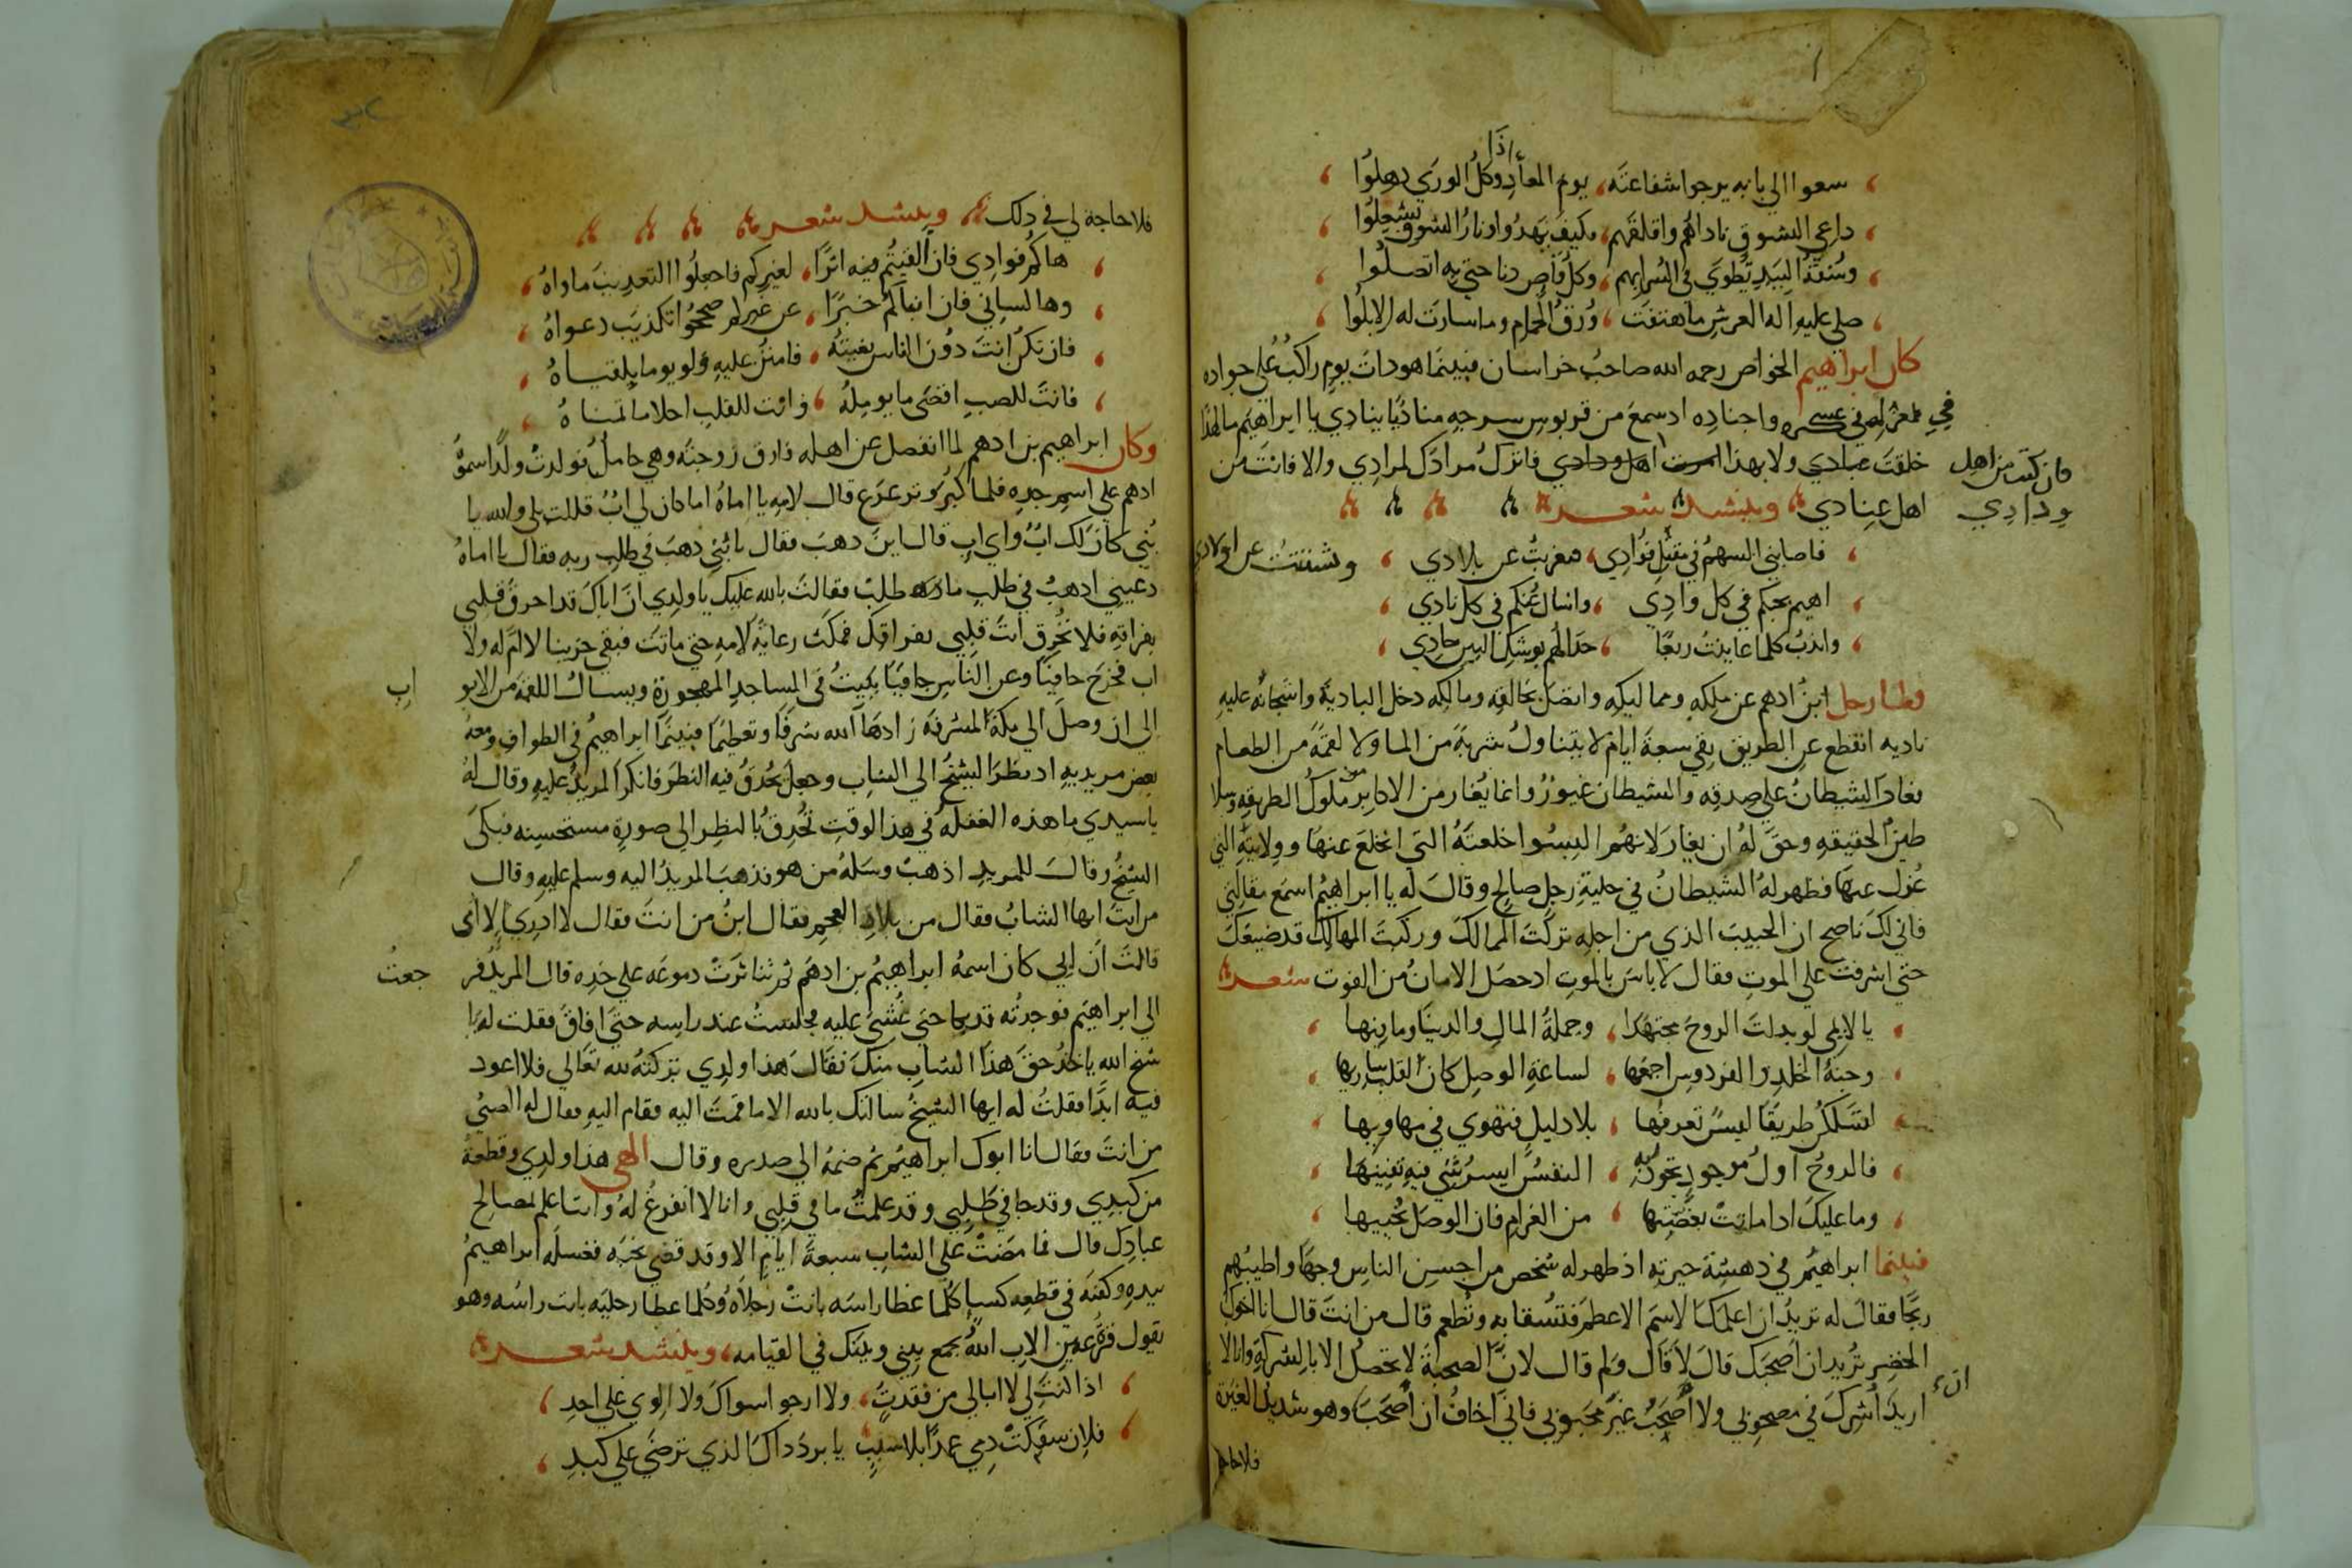 سعوا الي بابه يرجوا شفاعته، يوم المعاد اذا وكل الوري ذهلوا
داعي الشوق ناداهم واقلقهم، فكيف يهدوا ونار الشوق تشتعل
وشقة البيد تطوي في السرابهم، وكل قاص دنا حتي به اتصلوا
صلي عليه اله العرش ما هتفت، ورق الحمام وما سارت له الابلوا
كان ابراهيم الخواص رحمه الله صاحب خراسان فبينما هو ذات يوم راكب علي جواده
في عسكره واجناده اذ سمع من قربوس سرجه مناديا ينادي يا ابراهيم ما لهذا
خلقت عبادي ولا بهذا امرت اهل ودادي فاترك مرادك لمرادي والا فانت من
فان كنت من اهل
ودادي
اهل عنادي وينشد شعر
فاصابني السهم في مقتل فوادي، فغربت عن بلادي، وشتت عن اولادي
اهيم بحبكم في كل وادي، واسال عنكم في كل نادي
واندب كلما عاينت ربعا، حدا لهم بوشك البين حادي
فلما رحل ابن ادهم عن ملكه ومماليكه واتصل بخالقه ومالكه دخل البادية واشجانه عليه
ناديه انقطع عن الطريق بقي سبعة ايام لا يتناول شربة من الما ولا لقمة من الطعام
فغار الشيطان علي صدقه والشيطان غيور وانما يغار من الاكابر ملوك الطريقه وسلا
طين الحقيقه وحق له ان يغار لانهم البسوا خلعته التي انخلع عنها وولايته التي
عزل عنها فظهر له الشيطان في حلية رجل صالح وقال له يا ابراهيم اسمع مقالتي
فاني لك ناصح ان الحبيب الذي من اجله تركت الممالك وركبت المهالك قد ضيعك
حتي اشرفت علي الموت فقال لا باس بالموت اذ حصل الامان من الفوت شعر
يا لايمي لو بذلت الروح مجتهدا، وجملة المال والدنيا وما فيها
وجنة الخلد والفردوس اجمعها، لساعة الوصل كان القلب شاريها
لتسلكن طريقا ليس تعرفها، بلا دليل فتهوي في مهاويها
فالروح اول موجود تجود به، النفس ايسر شي فيه تفنيها
وما عليك اذا ماتت بغصتها، من الغرام فان الوصل يحييها
فبينما ابراهيم في دهشة حيرته اذ ظهر له شخص من احسن الناس وجها واطيبهم
ريحا فقال له تريد ان اعلمك الاسم الاعظم فتسقا به وتطعم قال من انت قال انا اخوك
الخضر تريد ان اصحبك قال لا قال ولم قال لان الصحبة لا تحصل الا بالشركة وانا لا
اريد اشرك في مصحوبي ولا اصحب غير محبوبي فاني اخاف ان اصحبك وهو شديد الغيرة
ان
فلا حاجة
فلا حاجة لي في ذلك وينشد شعر
هاكم فوادي فان الفيتم فيه اثرا، لغيركم فاجعلوا التعذيب ماواه
وها لساني فان انباكم خبرا، عن غيركم صححوا تكذيب دعواه
فان تكن انت دون الناس بغيته، فامنن عليه ولو يوما بلقياه
فانت للصب اقصي ما يومله، وانت للقلب احلا ما تمناه
وكان ابراهيم بن ادهم لما انفصل عن اهله فارق زوجته وهي حامل فولدت ولدا سمته
ادهم علي اسم جده فلما كبر وترعرع قال لامه يا اماه اما كان لي اب قالت بلي والله يا
بني كان لك اب واي اب قال اين ذهب فقال يا بني ذهب في طلب ربه فقال يا اماه
دعيني اذهب في طلب ما طلب فقالت بالله عليك يا ولدي ان اباك قد احرق قلبي
بفراقه فلا تحرق انت قلبي بفراقك فمكث رعاية لامه حتي ماتت فبقي حزينا لا ام له ولا
اب فخرج حافيا وعن الناس جافيا يبيت في المساجد المهجورة ويسال اللقمة من الابو
اب
الي ان وصل الي مكة المشرفة زادها الله شرفا وتعظيما فبينما ابراهيم في الطواف ومعه
بعض مريديه اذ نظر الشيخ الي الشاب وجعل يحدق فيه النظر فانكر المريد عليه وقال له
يا سيدي ما هذه الغفله في هذا الوقت تحدق بالنظر الي صورة مستحسنه فبكي
الشيخ وقال للمريد اذهب وسله من هو فذهب المريد اليه وسلم عليه وقال
من انت ايها الشاب فقال من بلاد العجم فقال ابن من انت فقال لا ادري الا امي
قالت ان ابي كان اسمه ابراهيم بن ادهم ثم تناثرت دموعه علي خده قال المريد فر
جعت
الي ابراهيم فوجدته قد بكا حتي غشي عليه فجلست عند راسه حتي افاق فقلت له يا
شيخ الله ياخذ حق هذا الشاب منك فقال هذا ولدي تركته لله تعالي فلا اعود
فيه ابدا فقلت له ايها الشيخ سالتك بالله الا ما قمت اليه فقام اليه فقال له الصبي
من انت فقال انا ابوك ابراهيم ثم ضمه الي صدره وقال الهي هذا ولدي وقطعة
من كبدي وقد جا في طلبي وقد علمت ما في قلبي وانا لا اتفرغ له وانت اعلم بمصالح
عبادك قال فما مضت علي الشاب سبعة ايام الا وقد قضي نحبه فغسله ابراهيم
بيده وكفنه في قطعه كسا كلما غطا راسه بانت رجلاه وكلما غطا رجليه بانت راسه وهو
يقول قرة عين الاب الله يجمع بيني وبينك في القيامه، وينشد شعر
اذا انت لي لا ابالي من فقدت، ولا ارجو سواك ولا الوي علي احد
فلان سفكت دمي عمدا بلا سبب يا برد ذاك الذي ترضي علي كبد